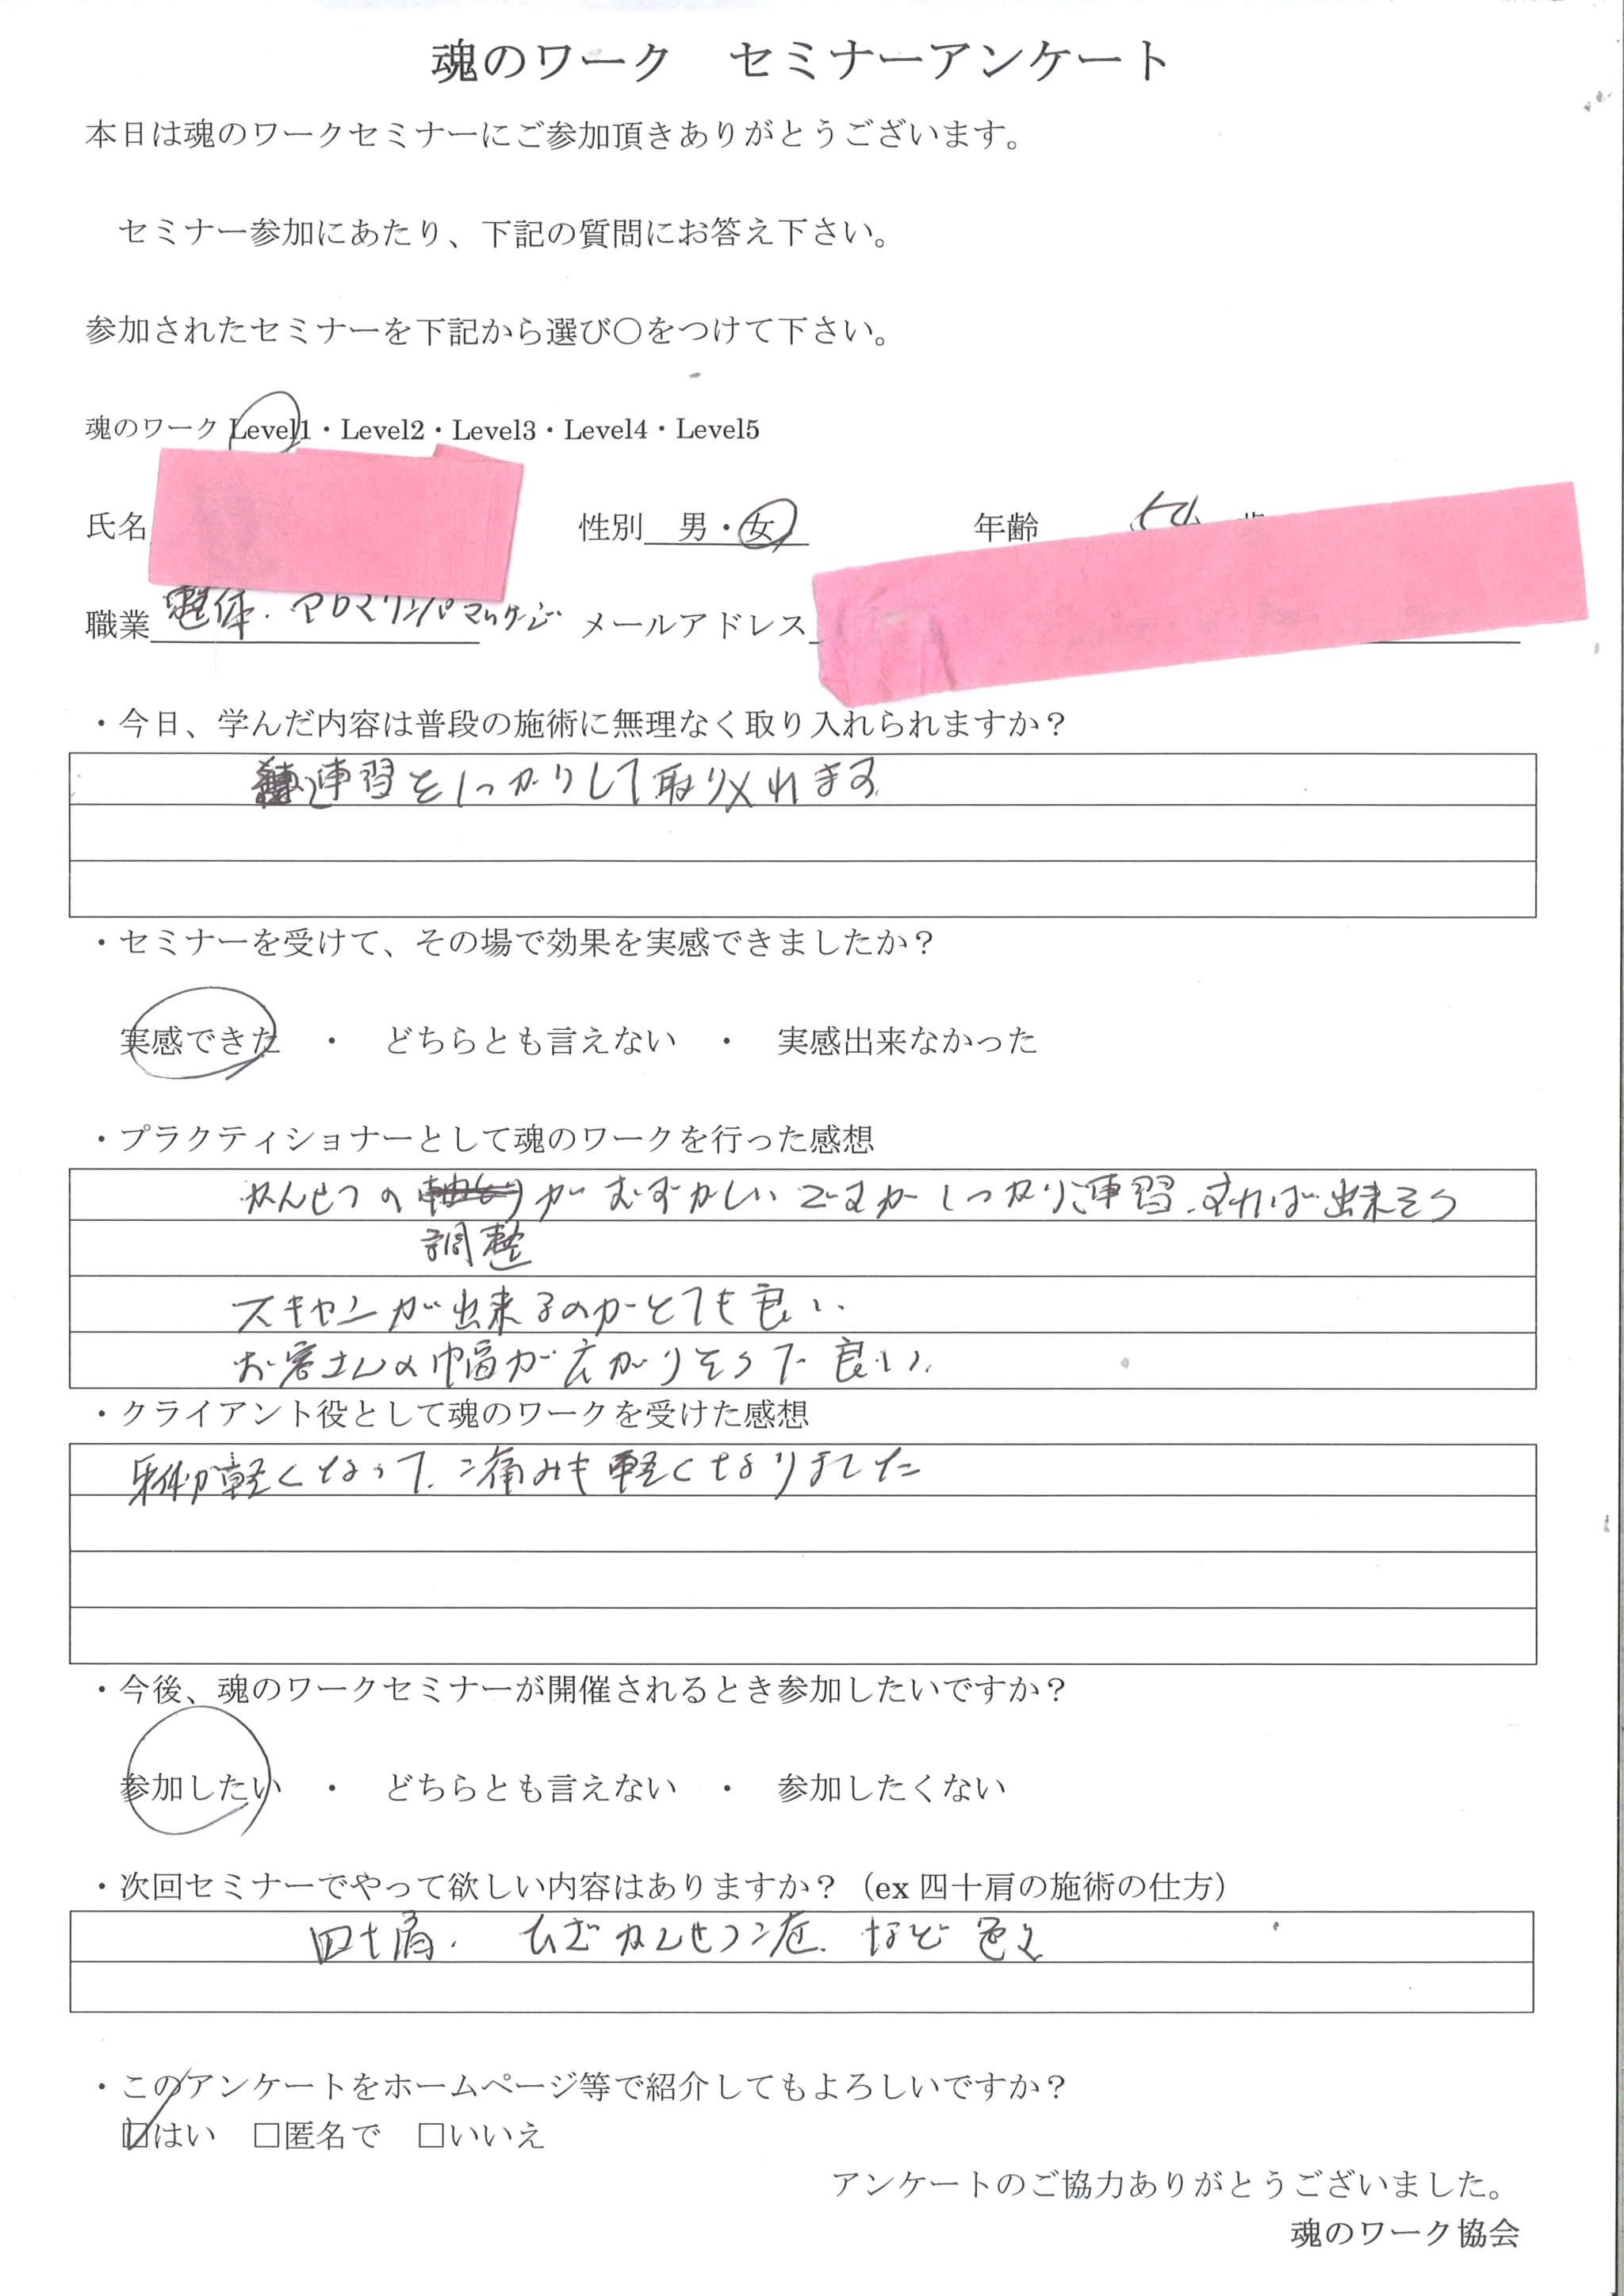 魂のワーク　セミナーアンケート
本日は魂のワークセミナーにご参加頂きありがとうございます。
セミナー参加にあたり、下記の質問にお答え下さい。
参加されたセミナーを下記から選び〇をつけて下さい。
魂のワーク Level1・Level2・Level3・Level4・Level5
氏名　性別　男・女　年齢
職業　整体．アロマリンパマッサージ　メールアドレス
・今日、学んだ内容は普段の施術に無理なく取り入れられますか？
練習をしっかりして取り入れます
・セミナーを受けて、その場で効果を実感できましたか？
実感できた　・　どちらとも言えない　・　実感出来なかった
・プラクティショナーとして魂のワークを行った感想
かんせつの　がむずかしいですがしっかり練習すれば出来そう
調整
スキャンが出来るのがとても良い
お客さんの幅が広がりそうで良い．
・クライアント役として魂のワークを受けた感想
体が軽くなって、痛みも軽くなりました
・今後、魂のワークセミナーが開催されるとき参加したいですか？
参加したい　・　どちらとも言えない　・　参加したくない
・次回セミナーでやって欲しい内容はありますか？（ex 四十肩の施術の仕方）
四十肩．ひざかんせつ症．など色々
・このアンケートをホームページ等で紹介してもよろしいですか？
☑はい　□匿名で　□いいえ
アンケートのご協力ありがとうございました。
魂のワーク協会